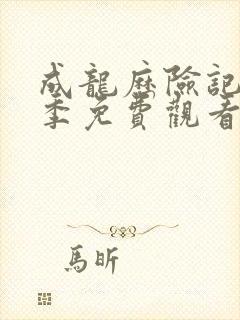 成龍歷險記
季免費觀看
馬昕